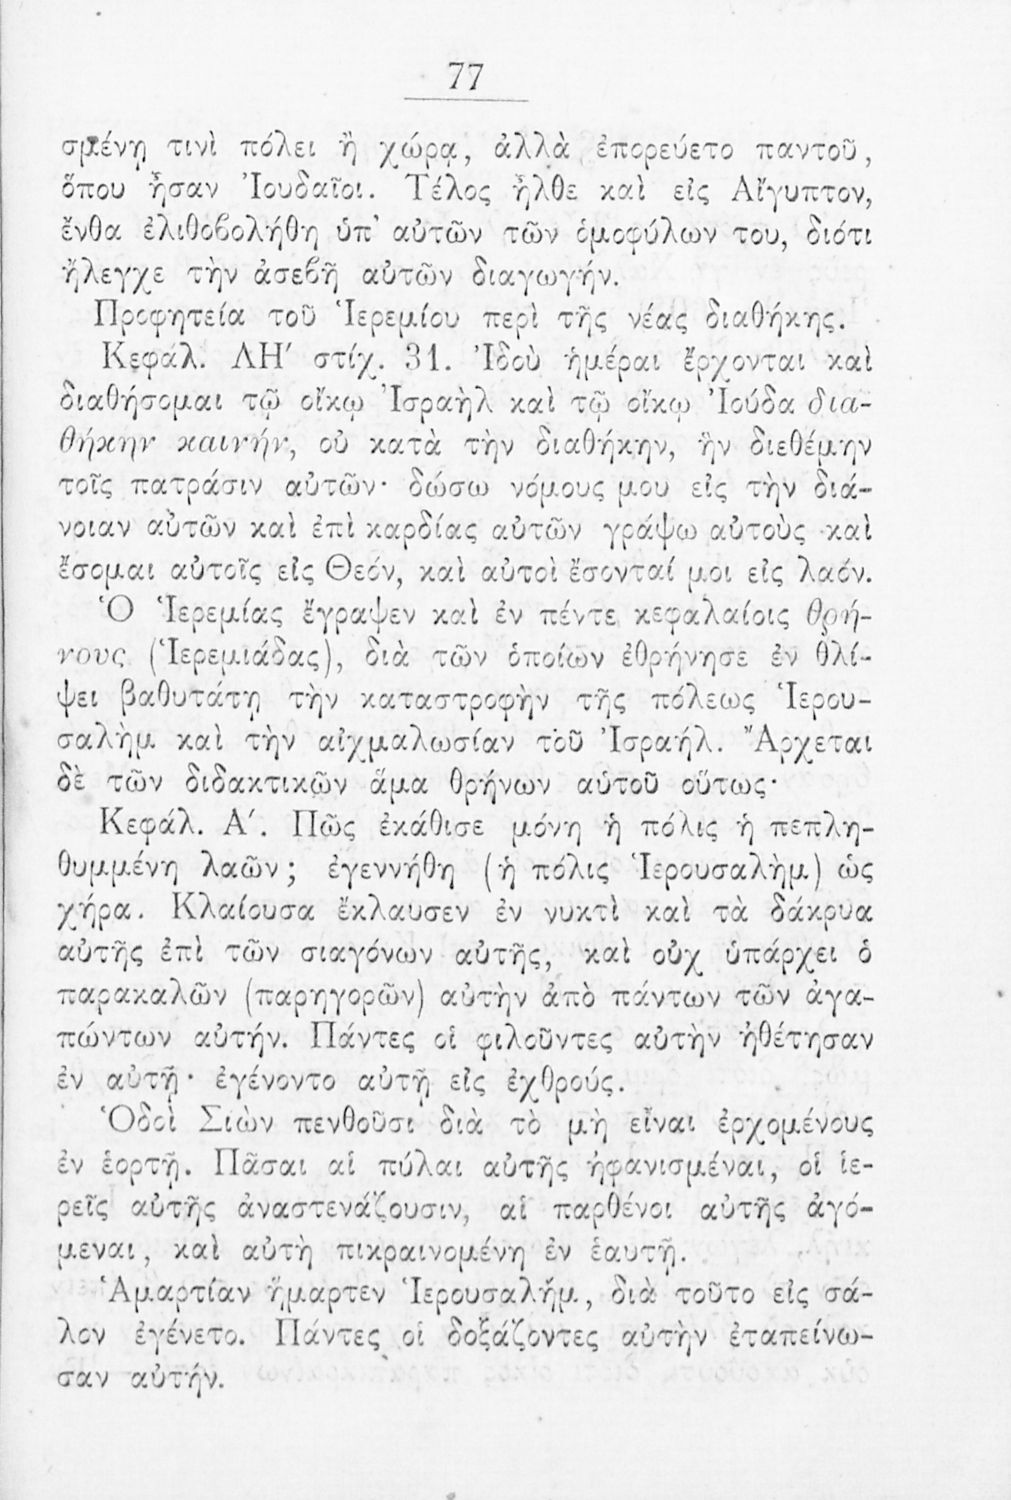 77
σμένῃ τινὶ πόλει ἢ χώρᾳ, ἀλλὰ ἐπορεύετο παντοῦ,
ὅπου ἦσαν Ἰουδαῖοι. Τέλος ἦλθε καὶ εἰς Αἴγυπτον,
ἔνθα ἐλιθοβολήθη ὑπ' αὐτῶν τῶν ὁμοφύλων του, διότι
ἤλεγχε τὴν ἀσεβῆ αὐτῶν διαγωγήν.
Προφητεία τοῦ Ἱερεμίου περὶ τῆς νέας διαθήκης.
Κεφάλ. ΛΗ′ στίχ. 31. Ἰδοὺ ἡμέραι ἔρχονται καὶ
διαθήσομαι τῷ οἴκῳ Ἰσραὴλ καὶ τῷ οἴκῳ Ἰούδα δια-
θήκην καινήν, οὐ κατὰ τὴν διαθήκην, ἣν διεθέμην
τοῖς πατράσιν αὐτῶν· δώσω νόμους μου εἰς τὴν διά-
νοιαν αὐτῶν καὶ ἐπὶ καρδίας αὐτῶν γράψω αὐτοὺς καὶ
ἔσομαι αὐτοῖς εἰς Θεόν, καὶ αὐτοὶ ἔσονταί μοι εἰς λαόν.
Ὁ Ἱερεμίας ἔγραψεν καὶ ἐν πέντε κεφαλαίοις θρή-
νους (Ἱερεμιάδας), διὰ τῶν ὁποίων ἐθρήνησε ἐν θλί-
ψει βαθυτάτῃ τὴν καταστροφὴν τῆς πόλεως Ἱερου-
σαλὴμ καὶ τὴν αἰχμαλωσίαν τοῦ Ἰσραήλ. Ἄρχεται
δὲ τῶν διδακτικῶν ἅμα θρήνων αὑτοῦ οὕτως·
Κεφάλ. Α′. Πῶς ἐκάθισε μόνη ἡ πόλις ἡ πεπλη-
θυμμένη λαῶν; ἐγεννήθη (ἡ πόλις Ἱερουσαλὴμ) ὡς
χήρα. Κλαίουσα ἔκλαυσεν ἐν νυκτὶ καὶ τὰ δάκρυα
αὐτῆς ἐπὶ τῶν σιαγόνων αὐτῆς, καὶ οὐχ ὑπάρχει ὁ
παρακαλῶν (παρηγορῶν) αὐτὴν ἀπὸ πάντων τῶν ἀγα-
πώντων αὐτήν. Πάντες οἱ φιλοῦντες αὐτὴν ἠθέτησαν
ἐν αὐτῇ· ἐγένοντο αὐτῇ εἰς ἐχθρούς.
Ὁδοὶ Σιὼν πενθοῦσι διὰ τὸ μὴ εἶναι ἐρχομένους
ἐν ἑορτῇ. Πᾶσαι αἱ πύλαι αὐτῆς ἠφανισμέναι, οἱ ἱε-
ρεῖς αὐτῆς ἀναστενάζουσιν, αἱ παρθένοι αὐτῆς ἀγό-
μεναι, καὶ αὐτὴ πικραινομένη ἐν ἑαυτῇ.
Ἁμαρτίαν ἥμαρτεν Ἱερουσαλήμ, διὰ τοῦτο εἰς σά-
λον ἐγένετο. Πάντες οἱ δοξάζοντες αὐτὴν ἐταπείνω-
σαν αὐτήν.